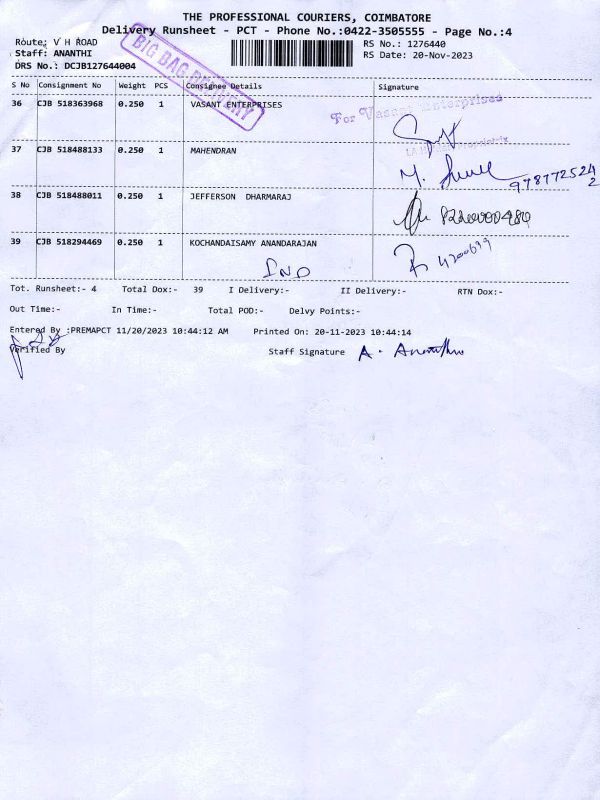 THE PROFESSIONAL COURIERS, COIMBATORE
Delivery Runsheet - PCT - Phone No.:0422-3505555 - Page No.:4
Route: V H ROAD RS No.: 1276440
Staff: ANANTHI RS Date: 20-Nov-2023
DRS No.: DCJB127644004
BIG BAG DELIVERY
S No Consignment No Weight PCS Consignee Details Signature
36 CJB 518363968 0.250 1 VASANT ENTERPRISES
For Vasant Enterprises
37 CJB 518488133 0.250 1 MAHENDRAN
9787725242
38 CJB 518488011 0.250 1 JEFFERSON DHARMARAJ
39 CJB 518294469 0.250 1 KOCHANDAISAMY ANANDARAJAN
IND
Tot. Runsheet:- 4 Total Dox:- 39 I Delivery:- II Delivery:- RTN Dox:-
Out Time:- In Time:- Total POD:- Delvy Points:-
Entered By :PREMAPCT 11/20/2023 10:44:12 AM Printed On: 20-11-2023 10:44:14
Verified By Staff Signature A. Ananthi